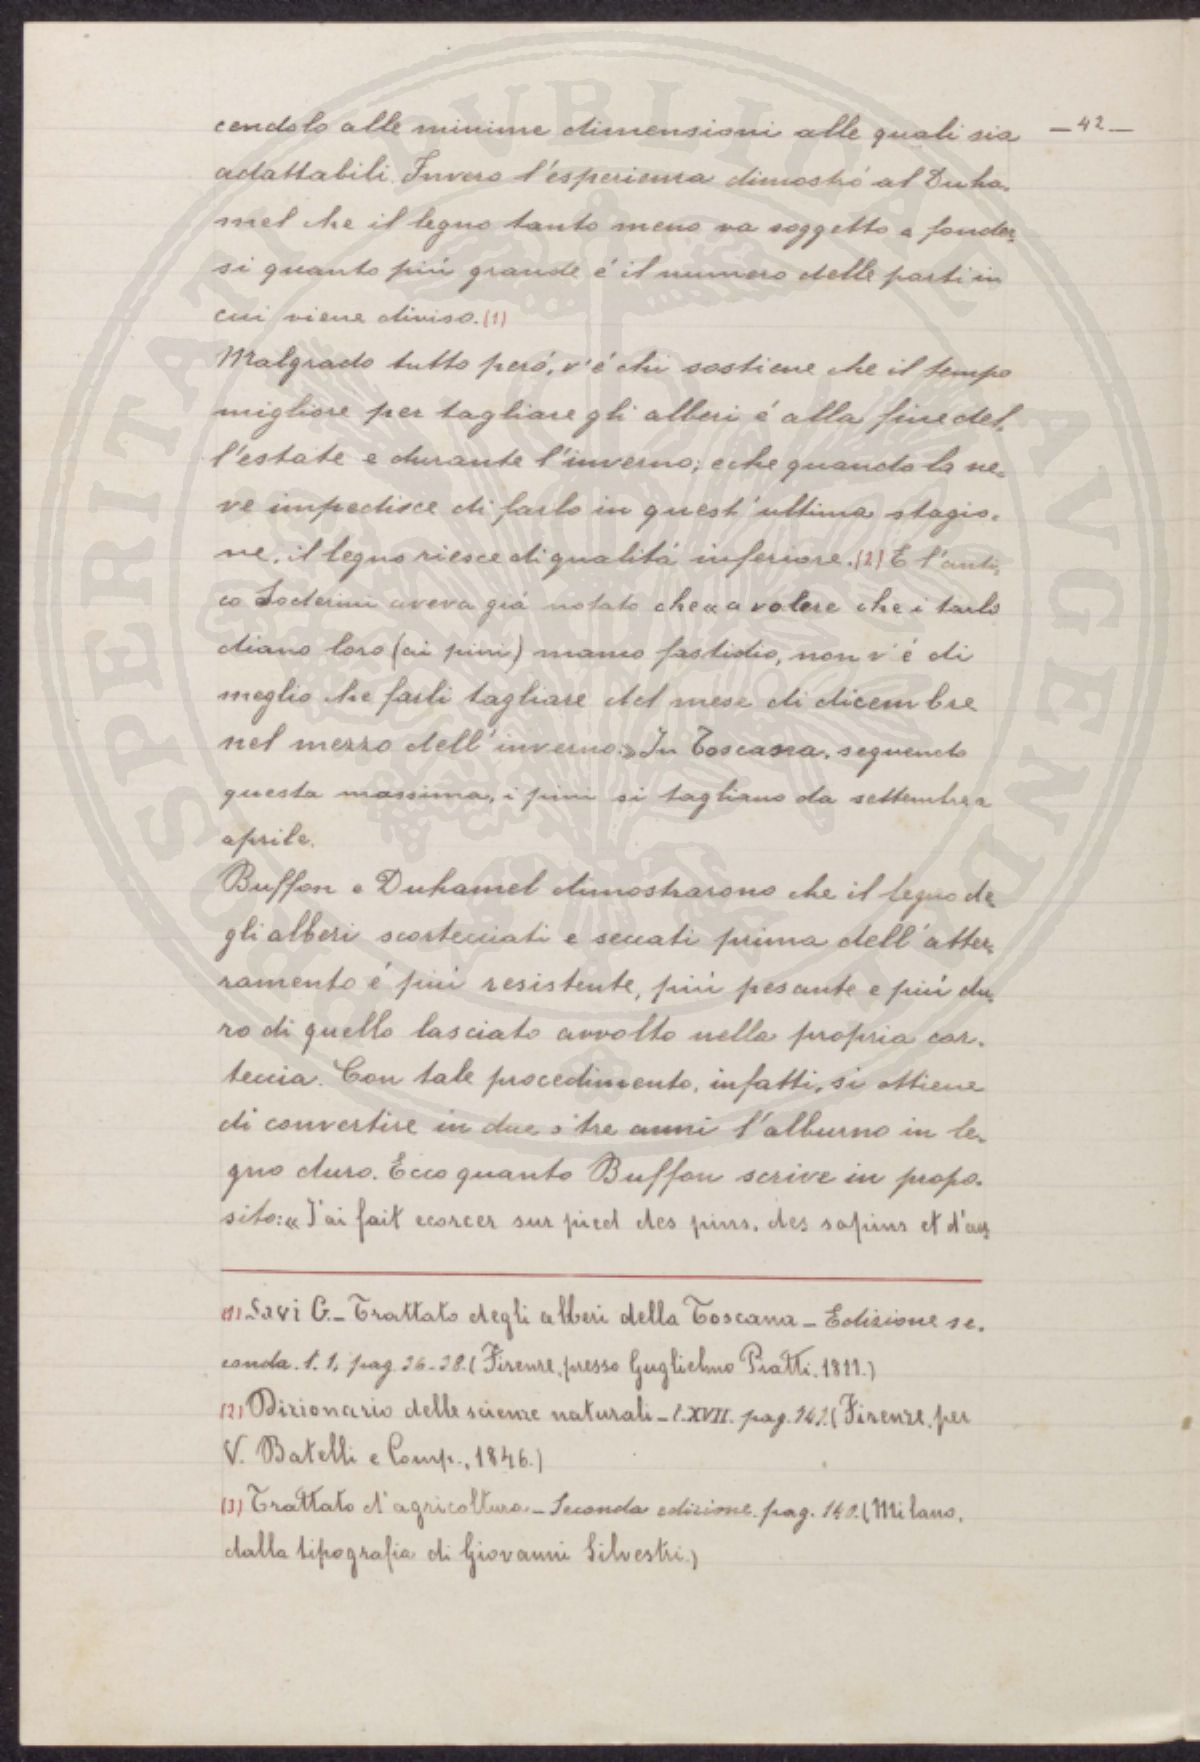 — 42 —
cendolo alle minime dimensioni alle quali sia
adattabili. Invero l'esperienza dimostró al Duha-
mel che il legno tanto meno va soggetto a fender-
si quanto piú grande é il numero delle parti in
cui viene diviso. (1)
Malgrado tutto peró, v'é chi sostiene che il tempo
migliore per tagliare gli alberi é alla fine del-
l'estate e durante l'inverno; e che quando la ne-
ve impedisce di farlo in quest'ultima stagio-
ne, il legno riesce di qualitá inferiore. (2) E l'anti-
co Soderini aveva giá notato che « a volere che i tarli
diano loro (ai pini) manco fastidio, non v'é di
meglio che farli tagliare del mese di dicembre
nel mezzo dell'inverno.» In Toscana, seguendo
questa massima, i pini si tagliano da settembre a
aprile.
Buffon e Duhamel dimostrarono che il legno de-
gli alberi scortecciati e seccati prima dell'atter-
ramento é piú resistente, piú pesante e piú du-
ro di quello lasciato avvolto nella propria cor-
teccia. Con tale procedimento, infatti, si ottiene
di convertire in due o tre anni l'alburno in le-
gno duro. Ecco quanto Buffon scrive in propo-
sito: « J'ai fait ecorcer sur pied des pins, des sapins et d'au-
(1) Savi G. — Trattato degli alberi della Toscana — Edizione se-
conda. t. 1, pag. 26-28. (Firenze, presso Guglielmo Piatti, 1811.)
(2) Dizionario delle scienze naturali — t. XVII. pag. (Firenze, per
V. Batelli e Comp., 1846.)
(3) Trattato d'agricoltura — Seconda edizione. pag. 140. (Milano,
dalla tipografia di Giovanni Silvestri.)
PROSPERITATI PVBLICAE AVGENDAE